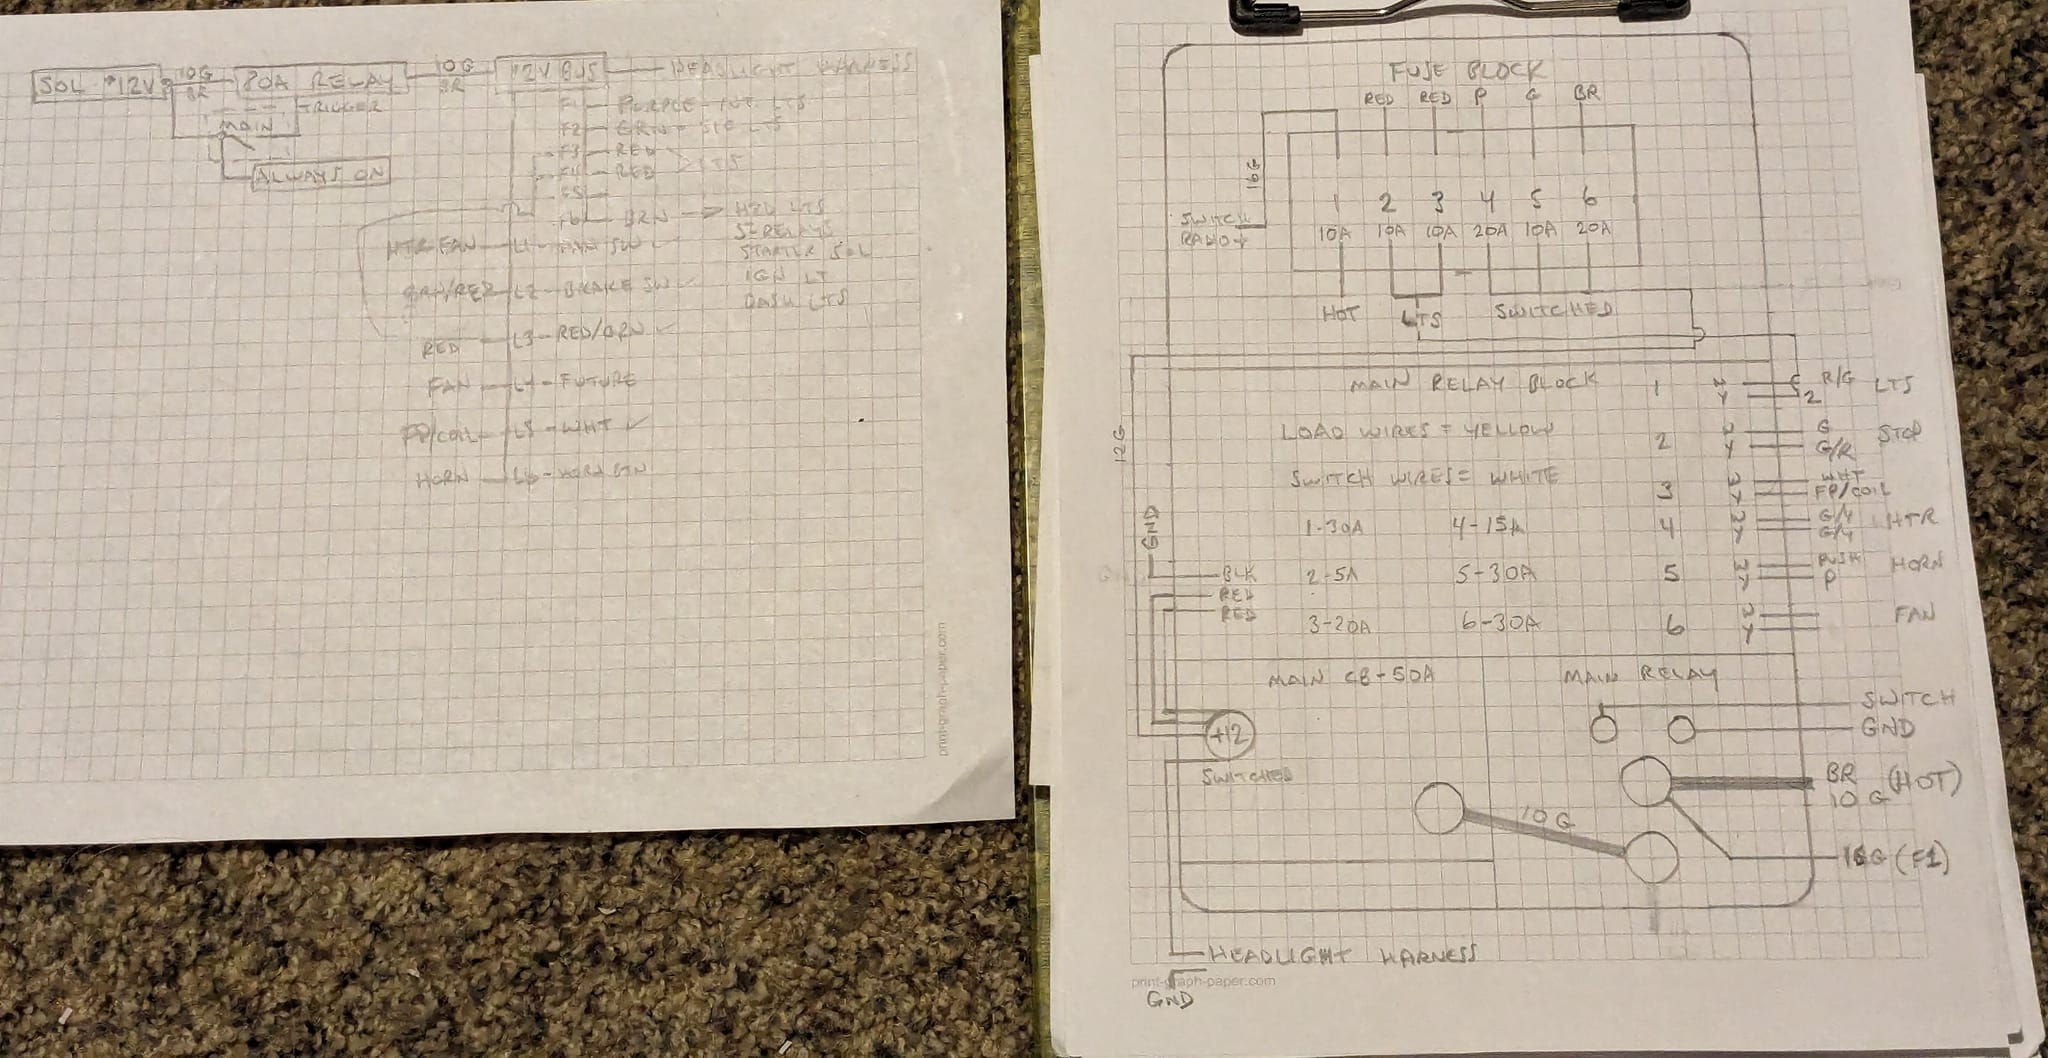 SOL +12V
10G
BR
80A RELAY
10G
BR
12V BUS
HEADLIGHT HARNESS
TRIGGER
MAIN
ALWAYS ON
F1 PURPLE - INT. LTS
F2 GRN - SIG LTS
F3 RED
F4 RED
LTS
F5
F6 BRN
HZD LTS
SZ RELAYS
STARTER SOL
IGN LT
DASH LTS
HTR FAN L1 - FAN SW
GRN/RED L2 - BRAKE SW
RED L3 - RED/GRN
FAN L4 - FUTURE
FP/COIL L5 - WHT
HORN L6 - HORN BTN
print-graph-paper.com
FUSE BLOCK
RED RED P G BR
16G
SWITCH
RADIO+
1 2 3 4 5 6
10A 10A 10A 20A 10A 20A
HOT LTS SWITCHED
MAIN RELAY BLOCK
LOAD WIRES = YELLOW
SWITCH WIRES = WHITE
1-30A 4-15A
2-5A 5-30A
3-20A 6-30A
12G
GND
BLK
RED
RED
1 W R/G LTS
Y 2
2 W G STOP
Y G/R
3 W WHT
Y FP/COIL
4 W G/Y HTR
Y G/Y
5 W PUSH HORN
Y P
6 W FAN
Y
MAIN CB-50A
MAIN RELAY
+12
SWITCHED
SWITCH
GND
BR (HOT)
10G
10G
16G (F1)
HEADLIGHT HARNESS
print-graph-paper.com
GND